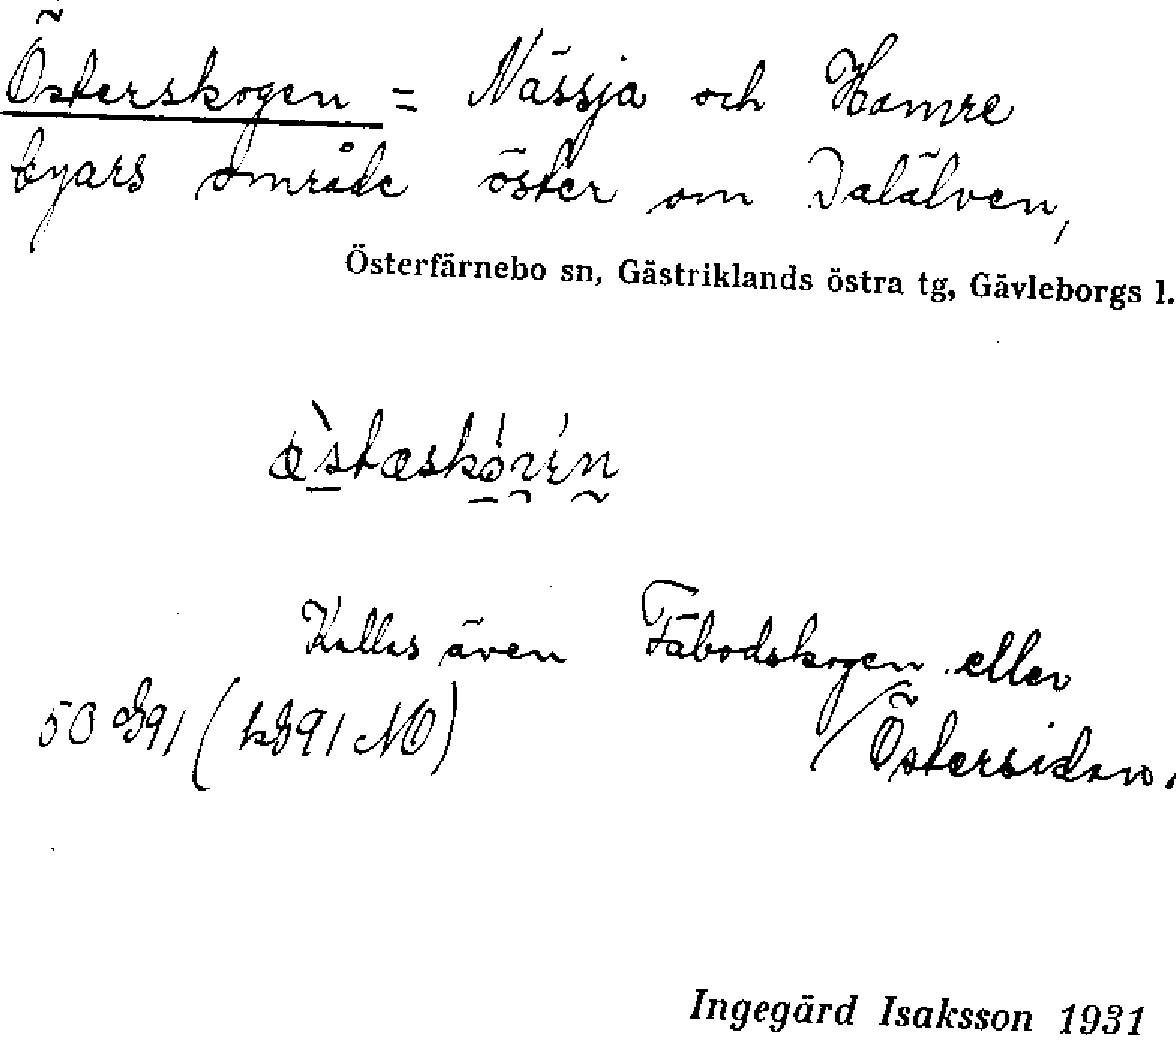 Österskogen = Nässja och Hamre
byars område öster om Dalälven,
Österfärnebo sn, Gästriklands östra tg, Gävleborgs l.
Kallas även Fäbodskogen eller
Östersidan.
Ingegärd Isaksson 1931